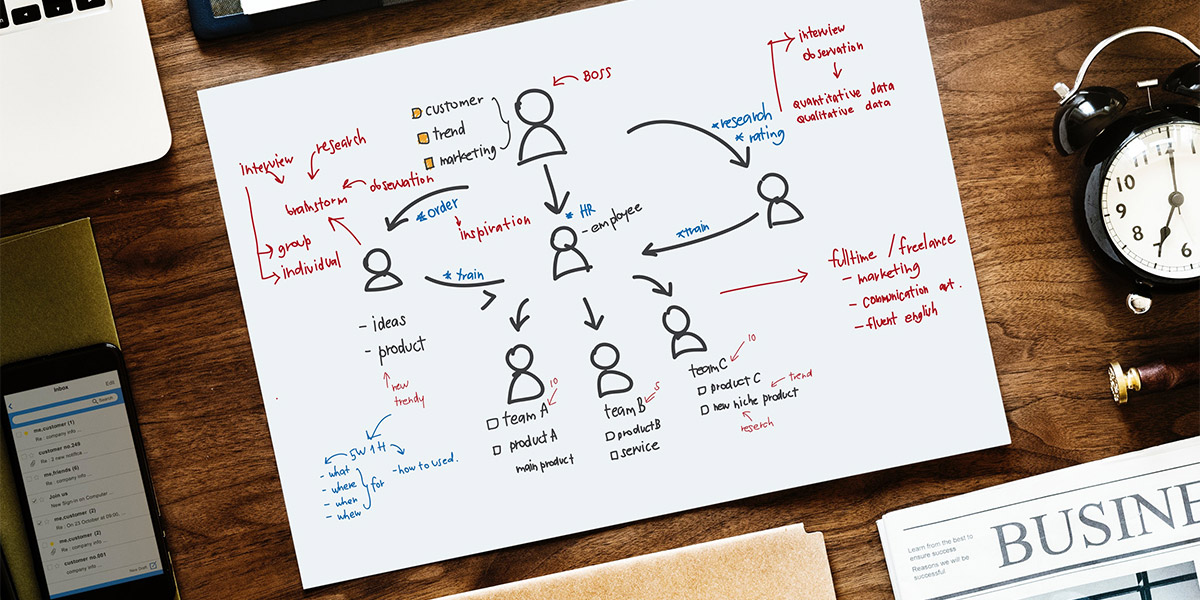 BOSS
customer
trend
marketing
interview
observation
quantitative data
qualitative data
*research
* rating
interview
research
observation
brainstorm
group
individual
*order
inspiration
* HR
- employee
* train
*train
- ideas
- product
new
trendy
fulltime / freelance
- marketing
- communication art.
- fluent english
10
team A
product A
main product
5
team B
product B
service
10
team C
product C
new niche product
trend
reserch
5W1H
- what
- where
- when
- whew
for
- how to used.
10
9
8
7
6
Inbox
Edit
Search
me,customer (1)
Re : company info ...
customer no.249
Re : 2 new notifica ...
me,friends (6)
Re : company info ...
Join us
New Sign-in on Computer ...
me,customer (2)
Re : On 23 October at 09:00, ...
me,customer (2)
Re : company info ...
customer no.001
company info ...
New Draft
Learn from the best to
ensure success
Reasons we will be
successful
BUSINE